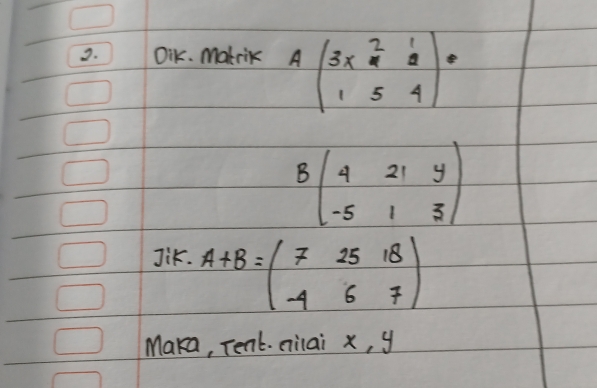 2. Dik. Matrik A (3x 2 1)
(1 5 4)
B (4 21 y)
(-5 1 3)
Jik. A+B = (7 25 18)
(-4 6 7)
Maka, Tent. nilai x, y